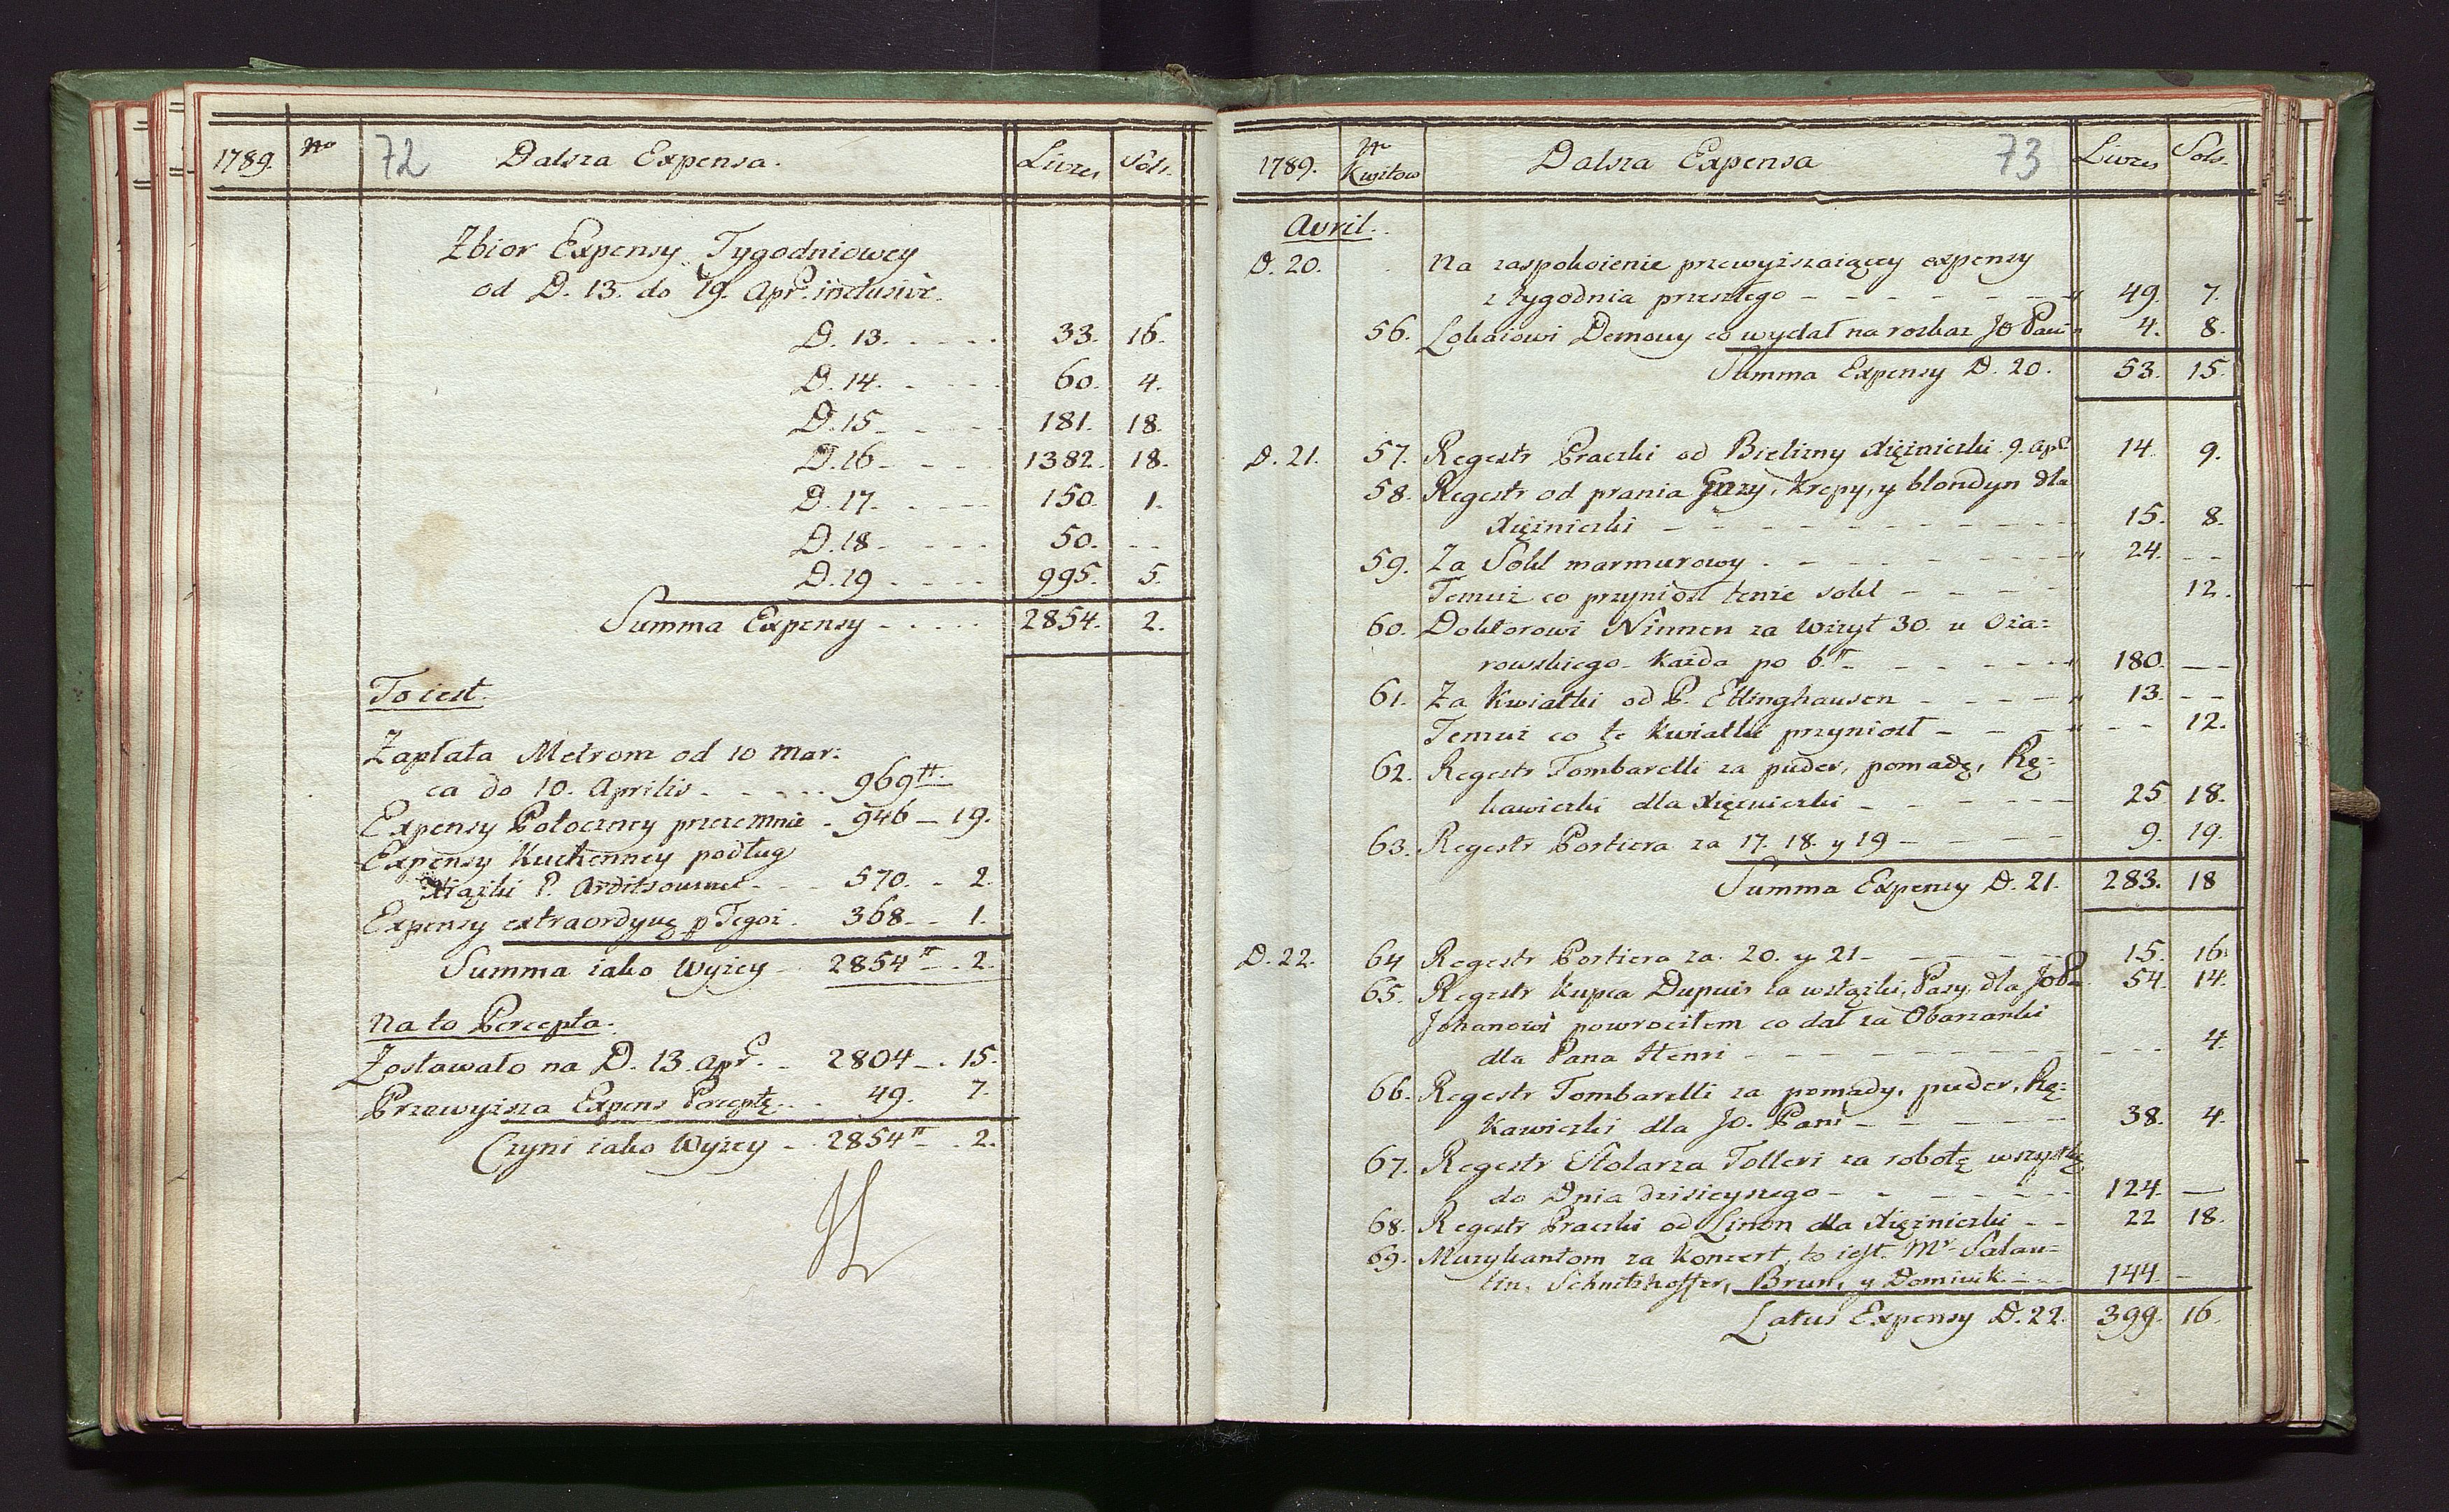 1789. No 72 Dalsza Expensa. Livres Sols.
Zbior Expensy Tygodniowey
od D. 13. do 19. Apr. inclusive.
D. 13. 33. 16.
D. 14. 60. 4.
D. 15 181. 18.
D. 16 1382. 18.
D. 17. 150. 1.
D. 18 50. --
D. 19 995. 5.
Summa Expensy 2854. 2.
To iest.
Zapłata Metrom od 10 Mar:
ca do 10. Aprilis 969 tt
Expensy Potoczney przezemnie 946 — 19.
Expensy Kuchenney podług
Xiążki P. 570. 2.
Expensy extraordyną p Tegoż 368. 1.
Summa iako Wyżey 2854 tt 2.
Na to Percepta.
Zostawało na D. 13. Apr. 2804 15.
Przewyższa Expens Perceptę 49. 7.
Czyni iako Wyżey 2854 tt 2.
1789. Nr Kwitow Dalsza Expensa 73 Livres Sols.
Avril.
D. 20. Na zaspokoienie przewyższaiącey expensy
z tygodnia przeszłego 49. 7.
56. Lokaiowi Demouy co wydał na rozkaz JO Pani 4. 8.
Summa Expensy D. 20. 53. 15
D. 21. 57. Regestr Praczki od Bielizny Xiężniczki 9. Apl 14 9.
58. Regestr od prania Gazy, Krepy, y blondyn dla
Xiężniczki 15. 8.
59. Za Sokl marmurowy 24. --
Temuż co przyniosł tenże sokl 12.
60. Doktorowi Ninnen za Wizyt 30. u Oża=
rowskiego Każda po 6 tt 180. --
61. Za Kwiatki od P. Ellinghausen 13. --
Temuż co te Kwiatki przyniosł -- 12.
62. Regestr Tombarelli za puder, pomadę, Rę=
kawiczki dla Xiężniczki 25 18.
63. Regestr Portiera za 17. 18. y 19 9. 19.
Summa Expensy D. 21. 283. 18
D. 22. 64 Regestr Portiera za 20. y 21 15. 16.
65. Regestr Kupca Dupuis za wstążki, Pasy, dla JOP. 54. 14.
Johanowi powrocilem co dał za Obarzanki
dla Pana Henri 4.
66. Regestr Tombarelli za pomady, puder, Rę=
Kawiczki dla JO. Pani 38. 4.
67. Regestr Stolarza Tolleri za robotę wszystkę
do Dnia dzisieyszego 124. —
68. Regestr Praczki od Linon dla Xiężniczki 22 18.
69. Muzykantom za Koncert, to iest. Mr Salan=
tin, Schnitzhoffer, Brun, y Dominik 144. -
Latus Expensy D. 22. 399. 16.